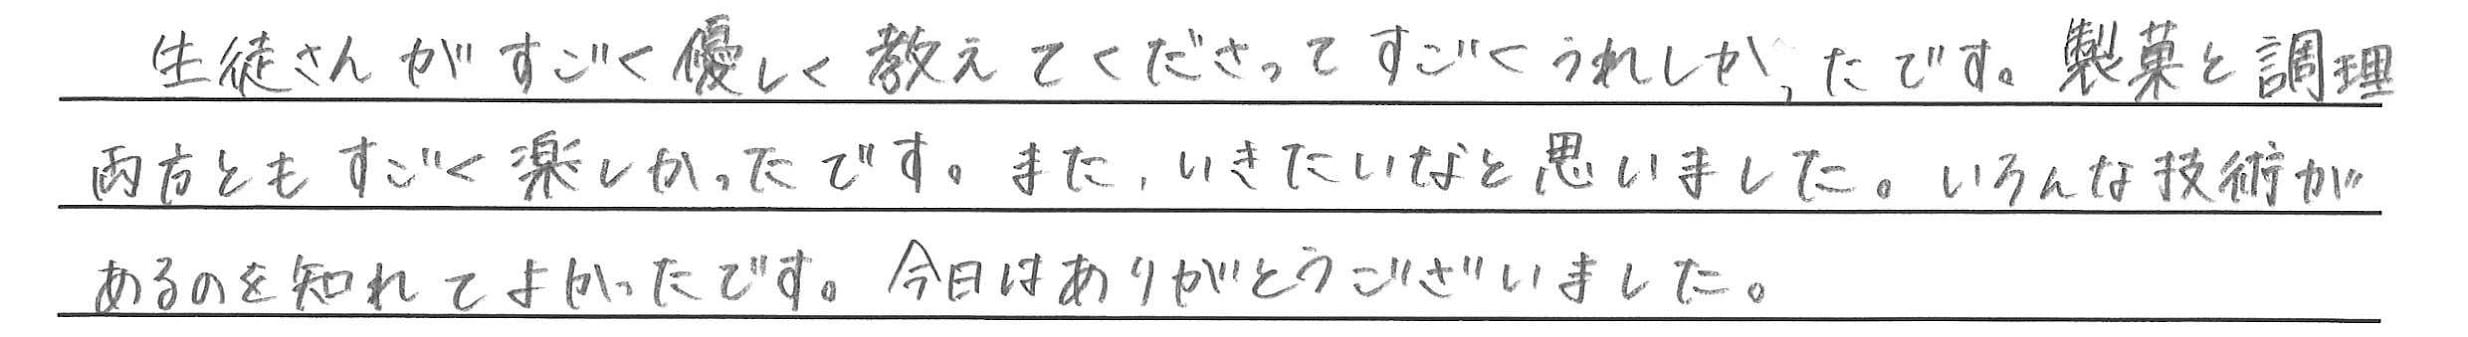 生徒さんがすごく優しく教えてくださってすごくうれしかったです。製菓と調理
両方ともすごく楽しかったです。また、いきたいなと思いました。いろんな技術が
あるのを知れてよかったです。今日はありがとうございました。